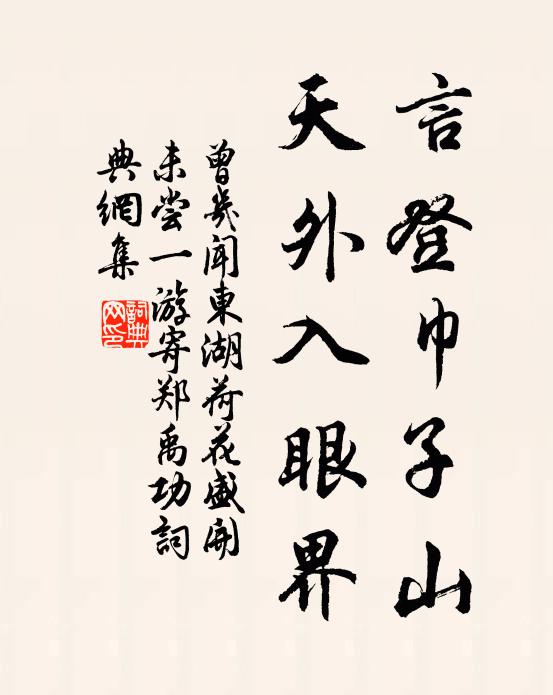 言登巾子山
天外入眼界
曾幾闻東湖荷花盛開
未尝一游寄郑禹功詞
典網集
詞典
网印